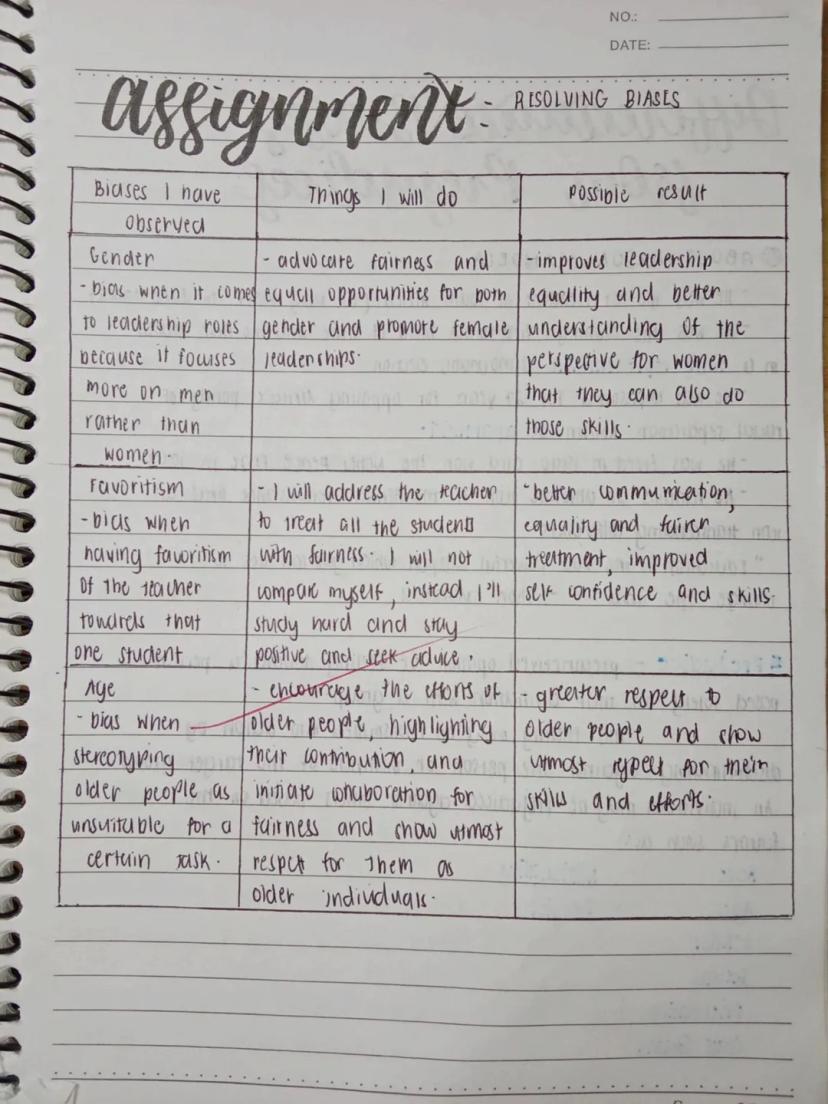 NO.:
DATE:
assignment:- RESOLVING BIASES
Biases I have
observed
Things I will do
Possible result
Gender
- bias when it comes
to leadership roles
because it focuses
more on men
rather than
women.
- advocate fairness and
equall opportunities for both
gender and promote female
leaderships.
- improves leadership
equality and better
understanding of the
perspective for women
that they can also do
those skills.
Favoritism
- bias when
having favoritism
of the teacher
towdrds that
one student
- I will address the teacher
to treat all the students
with fairness. I will not
compare myself, instead I'll
study hard and stay
positive and seek advice.
- better communication,
equality and fairer
treatment, improved
self confidence and skills.
Age
- bias when
stereotyping
older people as
unsuitable for a
certain task.
- encourage the efforts of
older people, highlighting
their contribution, and
initiate collaboration for
fairness and show utmost
respect for them as
older individuals.
- greater respect to
older people and show
utmost respect for their
skills and efforts.